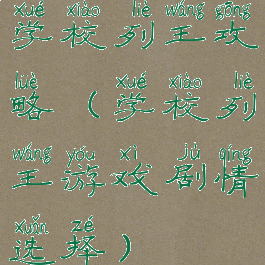 xué xiào liè wáng gōng
学校列王攻
lüè xué xiào liè
略（学校列
wáng yóu xì jù qíng
王游戏剧情
xuǎn zé
选择）